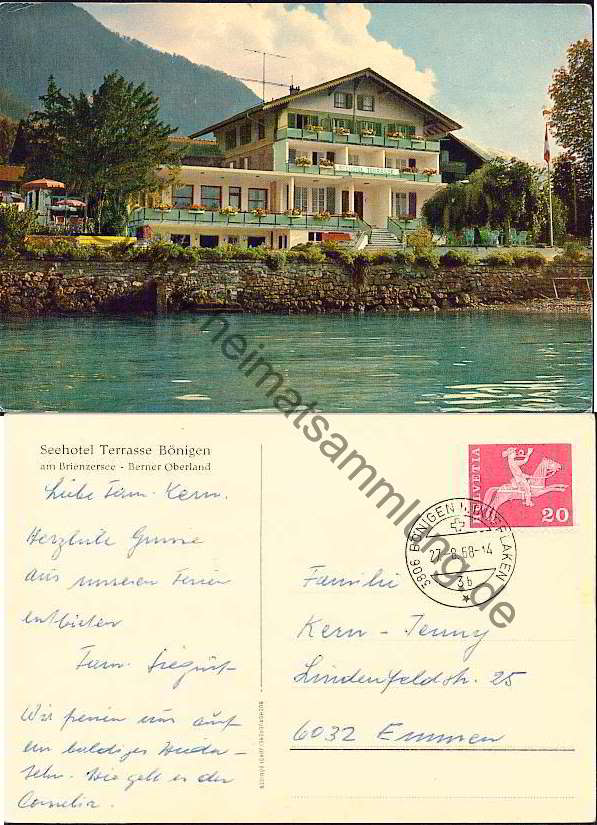 HOTEL TERRASSE
Seehotel Terrasse Bönigen
am Brienzersee - Berner Oberland
Liebe Fam. Kern.
Herzliche Grüsse
aus unseren Ferien
entbieten
Fam. Siegrist
Wir freuen uns auf
ein baldiges Wieder-
sehn. Wie geht es der
Cornelia.
HELVETIA
20
3806 BÖNIGEN INTERLAKEN
27-8.68-14
3b
Familie
Kern-Jenny
Lindenfeldstr. 25
6032 Emmen
heimatsammlung.de